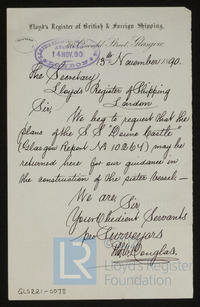 Lloyd's Register of British & Foreign Shipping,
Street, Glasgow
14 NOV. 90
13th November 1890.
The Secretary,
Lloyds Register of Shipping
London
Sir,
We beg to request that the
plans of the S.S. "Doune Castle"
(Glasgow Report No 10264) may be
returned here for our guidance in
the construction of the sister vessel.—
We are, Sir
Your Obedient Servants
pro Surveyors
Douglas.
GLS221-0078
Lloyd's Register
Foundation